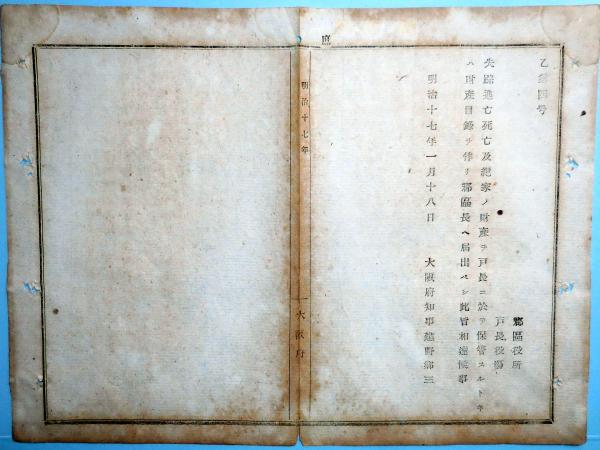 乙第四号
郡區役所
戸長役場
失踪逃亡死亡及絶家ノ財産ヲ戸長ニ於テ保管スルトキ
ハ財産目録ヲ作リ郡區長ヘ届出ヘシ此旨相達候事
明治十七年一月十八日　大阪府知事建野郷三
明治十七年
一大阪府